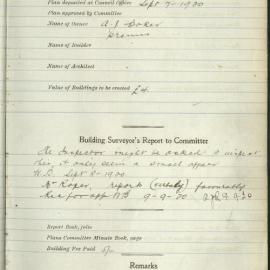 Plan deposited at Council Offices Sept 9-1930
Plan approved by Committee
Name of Owner A J Baker
Name of Builder
Name of Architect
Value of Buildings to be erected £4.
Building Surveyor's Report to Committee
The Inspector might be asked to inspect
this, it only seems a small affair
W.B Sept 8-1930
Mr Roper, reports (verbally) favourably
fee for app 9-9-30
Report Book, folio
Plans Committee Minute Book, page
Building Fee Paid 5/-
Remarks